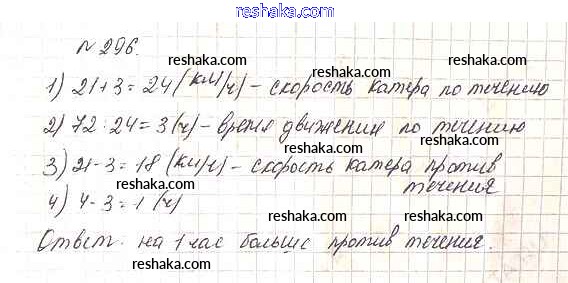 reshaka.ru
№ 296.
reshaka.ru reshaka.ru
1) 21+3=24 (км/ч) - скорость катера по течению
2) 72:24=3 (ч) - время движения по течению
reshaka.ru reshaka.ru
3) 21-3=18 (км/ч) - скорость катера против
течения
4) 4-3=1 (ч)
reshaka.ru reshaka.ru
Ответ: на 1 час больше против течения.
reshaka.ru